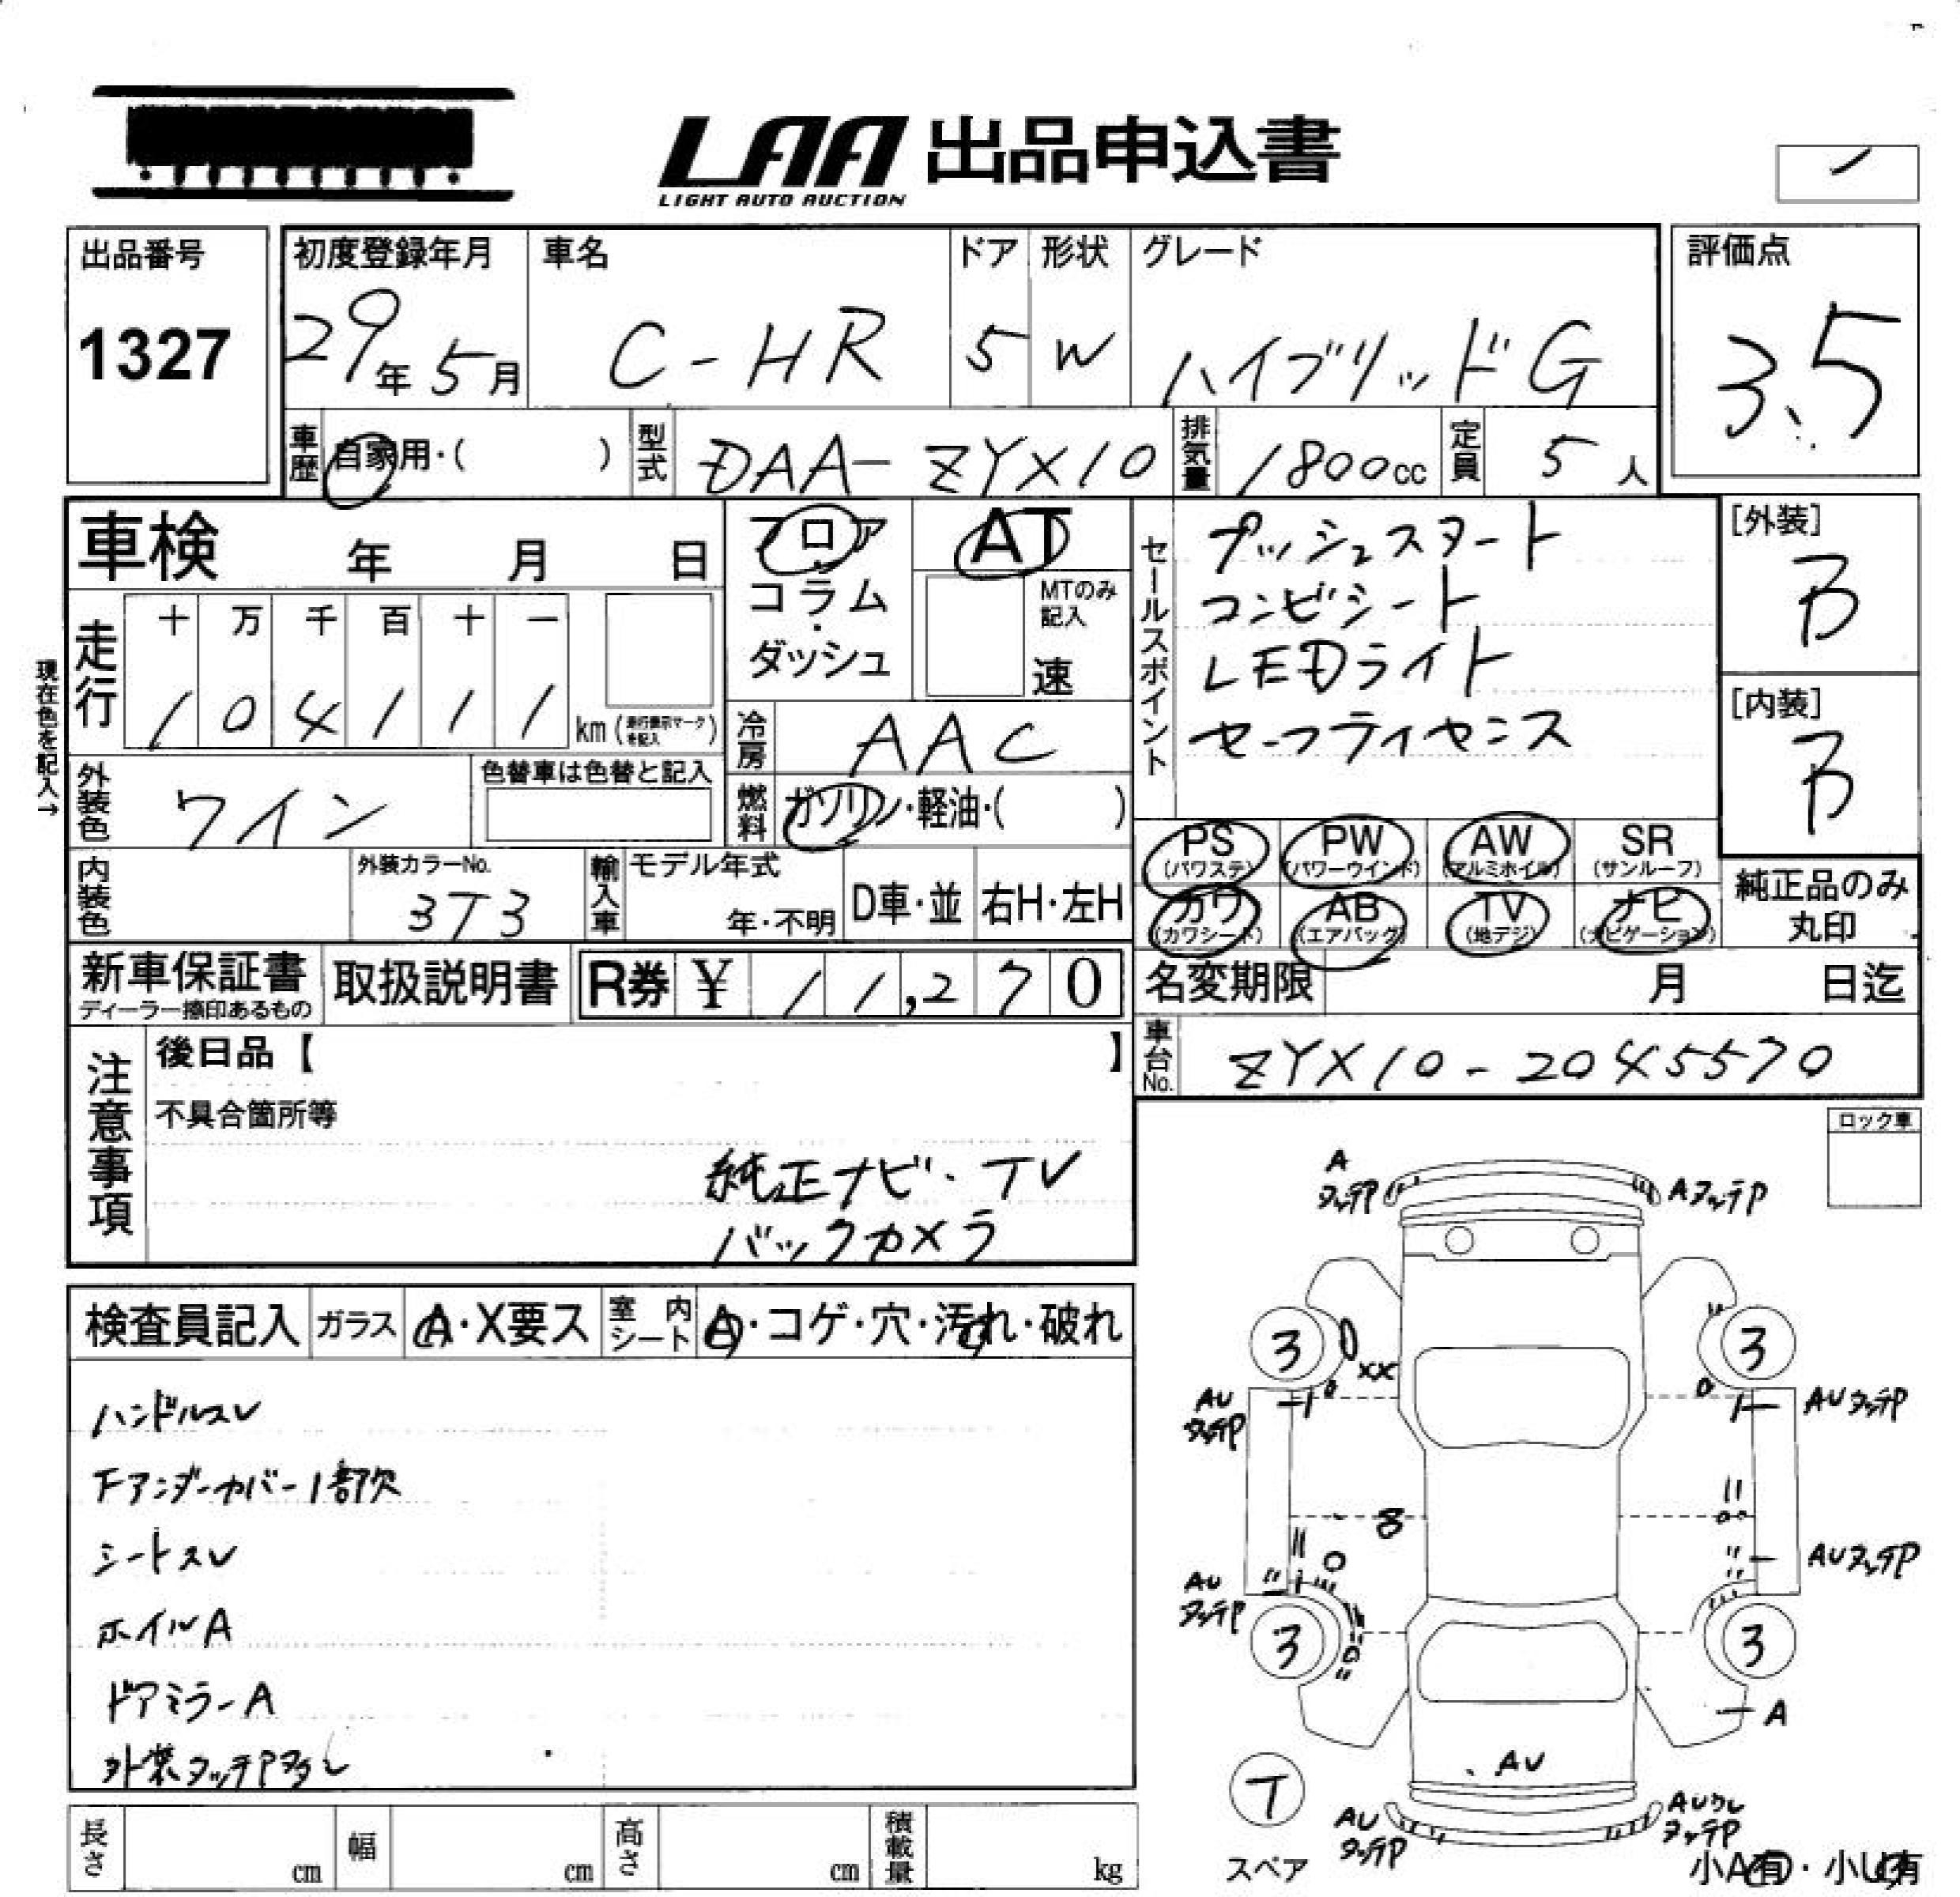 LAA 出品申込書
LIGHT AUTO AUCTION
出品番号
1327
初度登録年月
29年5月
車名
C-HR
ドア
5
形状
W
グレード
ハイブリッドG
評価点
3.5
車歴
自家用・( )
型式
DAA-ZYX10
排気量
1800cc
定員
5人
車検 年 月 日
フロア
・
コラム
・
ダッシュ
AT
MTのみ記入
速
セールスポイント
プッシュスタート
コンビシート
LEDライト
セーフティセンス
[外装]
B
[内装]
B
現在色を記入→
走行
十 万 千 百 十 一
1 0 4 1 1 1
km(走行表示マークを記入)
冷房
AAC
外装色
ワイン
色替車は色替と記入
燃料
ガソリン・軽油・( )
PS
(パワステ)
PW
(パワーウインド)
AW
(アルミホイル)
SR
(サンルーフ)
カワ
(カワシート)
AB
(エアバッグ)
TV
(地デジ)
ナビ
(ナビゲーション)
純正品のみ
丸印
内装色
外装カラーNo.
3T3
輸入車
モデル年式
年・不明
D車・並
右H・左H
新車保証書
ディーラー捺印あるもの
取扱説明書
R券 ¥ 11,270
名変期限 月 日迄
車台No.
ZYX10-2045570
注意事項
後日品【 】
不具合箇所等
純正ナビ・TV
バックカメラ
ロック車
検査員記入
ガラス
A・X要ス
室内シート
A・コゲ・穴・汚れ・破れ
ハンドルスレ
Fアンダーカバー1部欠
シートスレ
ホイルA
ドアミラーA
外装タッチP多し
A
タッチP
AタッチP
3
3
XX
AU
タッチP
AUタッチP
8
AU
タッチP
AUタッチP
3
3
A
AU
T
スペア
AU
タッチP
AUワレ
タッチP
小A有・小U有
長さ cm
幅 cm
高さ cm
積載量 kg